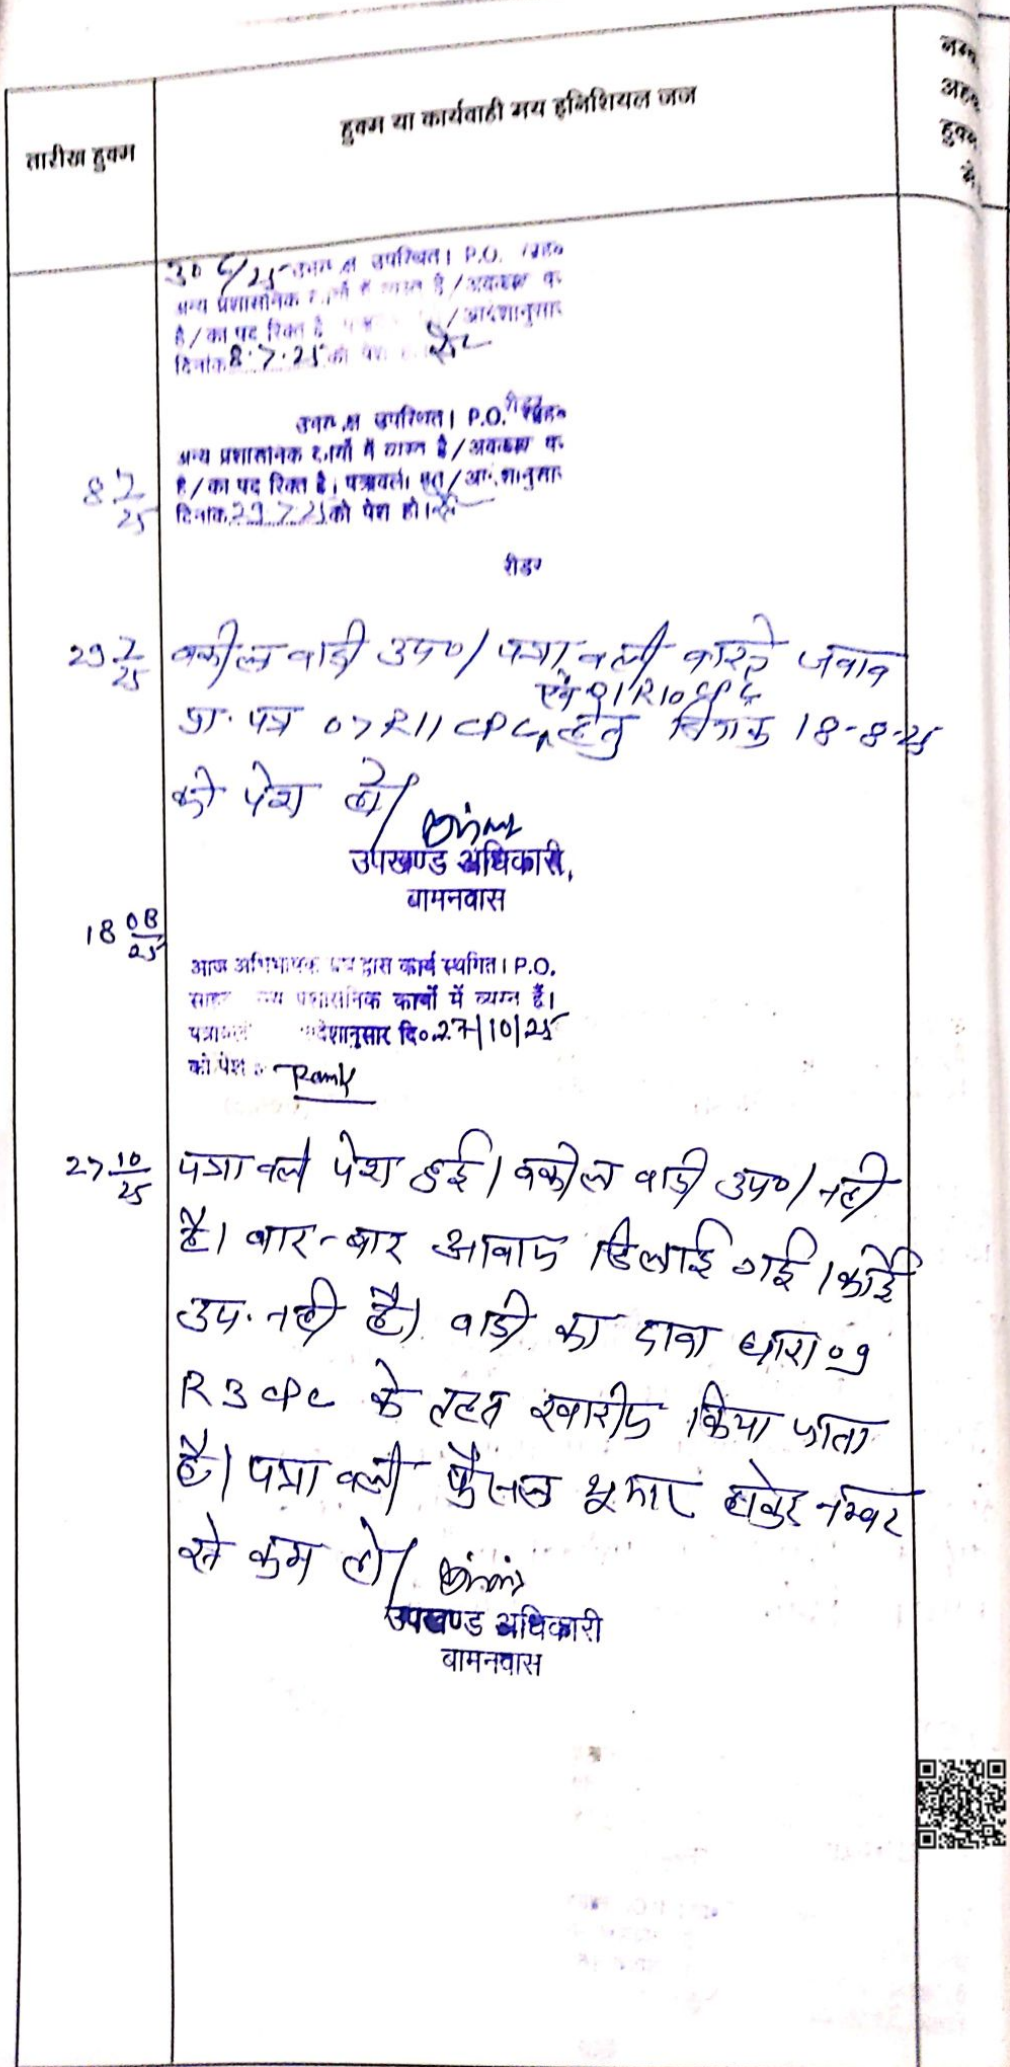 तारीख हुक्म
हुक्म या कार्यवाही मय इनिशियल जज
नम्ब
अहव
हुक्म
में
30 6/25 उपस्थित। P.O.
अन्य प्रशासनिक कार्यों में व्यस्त है/अवकाश प
है/का पद रिक्त है /आदेशानुसार
दिनांक 8.7.25 को पेश
उभय पक्ष उपस्थित। P.O.
अन्य प्रशासनिक कार्यों में व्यस्त है/अवकाश प
8 7/25 है/का पद रिक्त है। पत्रावली /आदेशानुसार
दिनांक 29 7 25 को पेश हो।
रीडर
29 7/25 वकील वादी उप०/ पत्रावली वास्ते जवाब
एवं 01R10 CPC
प्रा. पत्र 07R11 CPC हेतु दिनांक 18-8-25
को पेश हो/
उपखण्ड अधिकारी,
बामनवास
18 08/25
आज अभिभाषक द्वारा कार्य स्थगित। P.O.
प्रशासनिक कार्यों में व्यस्त हैं।
आदेशानुसार दि० 27/10/25
को पेश
27 10/25 पत्रावली पेश हुई। वकील वादी उप०/ नही
है। बार-बार आवाज दिलाई गई। कोई
उप. नही है। वादी का दावा धारा 09
R3 CPC के तहत खारीज किया जाता
है। पत्रावली फैसल शुमार होकर नम्बर
से कम हो/
उपखण्ड अधिकारी
बामनवास